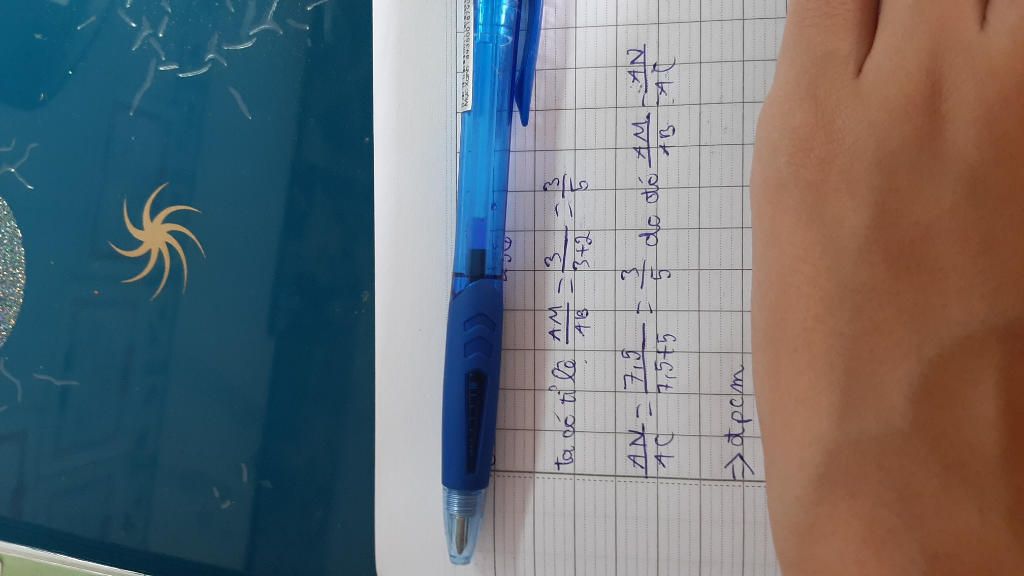 ta có tỉ lệ AM/AB = 3/3+2 = 3/5
AN/AC = 7,5/7,5+5 = 3/5 do đó AM/AB = AN/AC
=> đpcm